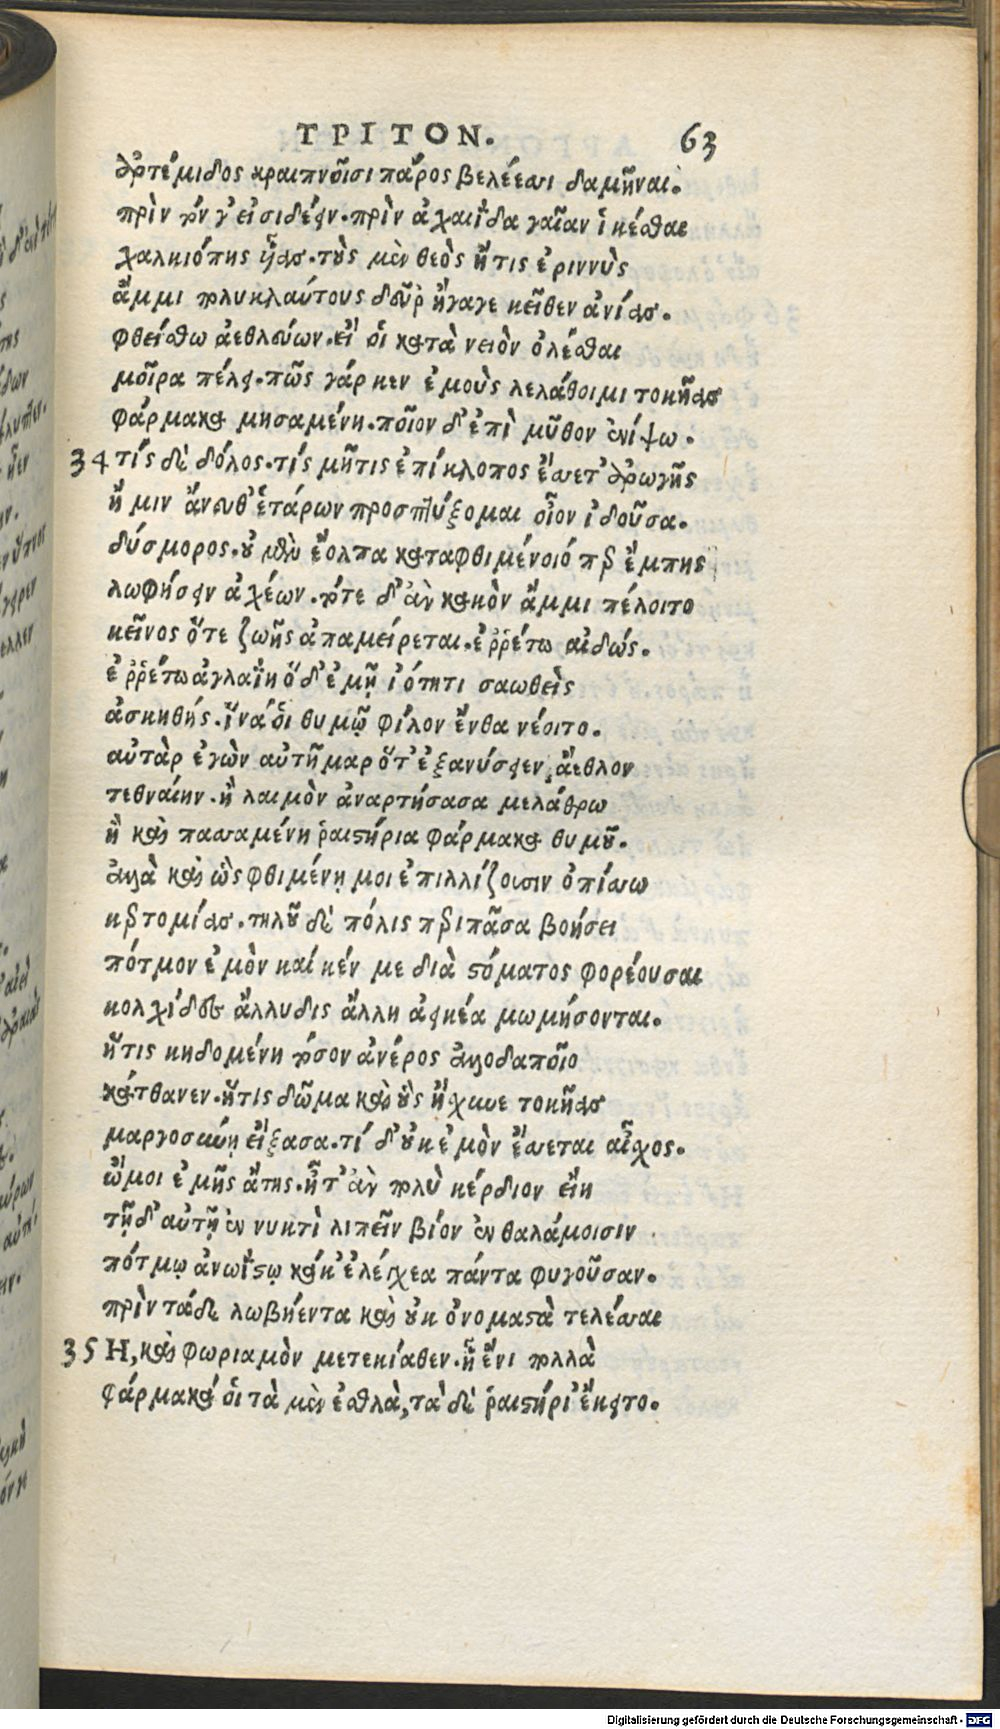 ΤΡΙΤΟΝ. 63
ἀρτέμιδος κραιπνοῖσι πάρος βελέεσσι δαμῆναι.
πρὶν τόν γ' εἰσιδέειν. πρὶν ἀχαιΐδα γαῖαν ἱκέσθαι
χαλκιόπης ἧας. τοὺς μὲν θεὸς ἤ τις ἐριννὺς
ἄμμι πολυκλαύτους δεῦρ' ἤγαγε κεῖθεν ἀνίας.
φθείσθω ἀεθλεύων. εἴ οἱ κατὰ νειὸν ὀλέσθαι
μοῖρα πέλει. πῶς γάρ κεν ἐμοὺς λελάθοιμι τοκῆας
φάρμακα μησαμένη. ποῖον δ' ἐπὶ μῦθον ἐνίψω.
34 τίς δὲ δόλος. τίς μῆτις ἐπίκλοπος ἔσσετ' ἀρωγῆς
ἤ μιν ἄνευθ' ἑτάρων προσπτύξομαι οἶον ἰδοῦσα.
δύσμορος. οὐ μὲν ἔολπα καταφθιμένοιό περ ἔμπης
λωφήσειν ἀχέων. τότε δ' ἂν κακὸν ἄμμι πέλοιτο
κεῖνος ὅτε ζωῆς ἀπαμείρεται. ἐῤῥέτω αἰδώς.
ἐῤῥέτω ἀγλαΐη ὅ δ' ἐμῇ ἰότητι σαωθεὶς
ἀσκηθής. ἵνά οἱ θυμῷ φίλον ἔνθα νέοιτο.
αὐτὰρ ἐγὼν αὐτῆμαρ ὅτ' ἐξανύσειεν ἄεθλον
τεθναίην. ἢ λαιμὸν ἀναρτήσασα μελάθρω
ἢ καὶ πασσαμένη ῥαιστήρια φάρμακα θυμοῦ.
ἀλλὰ καὶ ὣς φθιμένῃ μοι ἐπιλλίζουσιν ὀπίσσω
κερτομίας. τηλοῦ δὲ πόλις περιπᾶσα βοήσει
πότμον ἐμὸν καί κέν με διὰ στόματος φορέουσαι
κολχίδες ἄλλυδις ἄλλη ἀεικέα μωμήσονται.
ἥτις κηδομένη τόσον ἀνέρος ἀλλοδαποῖο
κάτθανεν. ἥτις δῶμα καὶ οὓς ᾔσχυνε τοκῆας
μαργοσύνῃ εἴξασα. τί δ' οὐκ ἐμὸν ἔσσεται αἶσχος.
ὤμοι ἐμῆς ἄτης. ἦ τ' ἂν πολὺ κέρδιον εἴη
τῇ δ' αὐτῇ ἐν νυκτὶ λιπεῖν βίον ἐν θαλάμοισιν
πότμῳ ἀνωΐστῳ κάκ' ἐλέγχεα πάντα φυγοῦσαν.
πρὶν τάδε λωβήεντα καὶ οὐκ ὀνομαστὰ τελέσσαι
35 Η, καὶ φωριαμὸν μετεκίαθεν. ᾗ ἔνι πολλὰ
φάρμακά οἱ τὰ μὲν ἐσθλὰ, τὰ δὲ ῥαιστήρι' ἔκειτο.
Digitalisierung gefördert durch die Deutsche Forschungsgemeinschaft - DFG